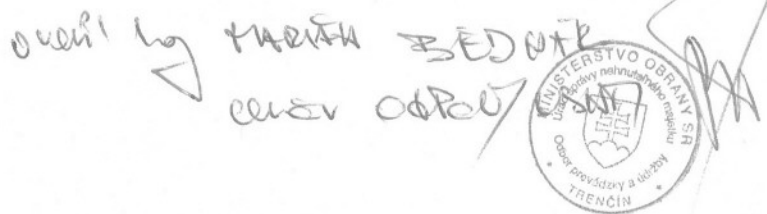 overil Ing MARIÁN BEDNÁR
MINISTERSTVO OBRANY SR
Úrad správy nehnuteľného majetku
Odbor prevádzky a údržby
TRENČÍN